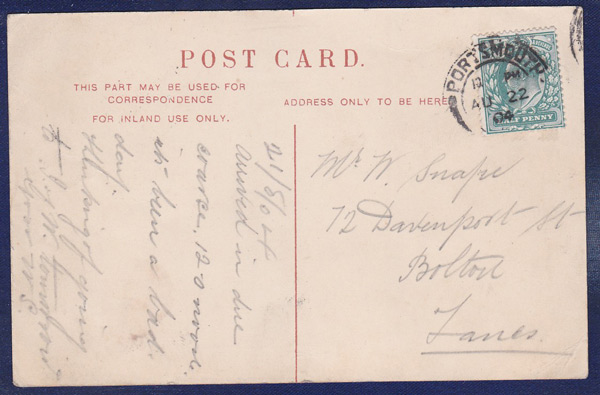 POST CARD.
THIS PART MAY BE USED FOR
CORRESPONDENCE
FOR INLAND USE ONLY.
ADDRESS ONLY TO BE HERE
PORTSMOUTH
12 PM
AU 22
HALF PENNY
21/8/04
Arrived in due
coarse. 12-0 noon.
been a bad
day
thinking of going
Mr W. Snape
72 Davenport St
Bolton
Lancs.